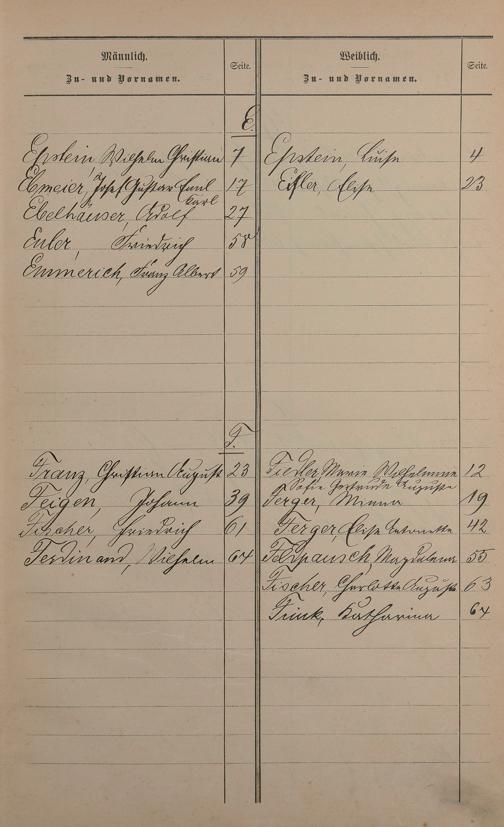 Männlich.
Zu- und Vornamen.
Seite.
Weiblich.
Zu- und Vornamen.
Seite.
E.
Epstein, Wilhelm Christian 7
Epstein, Luise 4
Ebmeier, Josef Gustav Emil 17
Karl
Eifler, Elise 23
Ebelhäuser, Adolf 27
Euler, Friedrich 58
Emmerich, Franz Albert 59
F.
Franz, Christian August 23
Fiedler, Marie Wilhelmine 12
Gertrude Auguste
Feigen, Johann 39
Ferger, Minna 19
Fischer, Friedrich 61
Ferger Elise Antonette 42
Ferdinand, Wilhelm 64
Magdalena 55
Fischer, Charlotte Auguste 63
Fink, Katharina 64